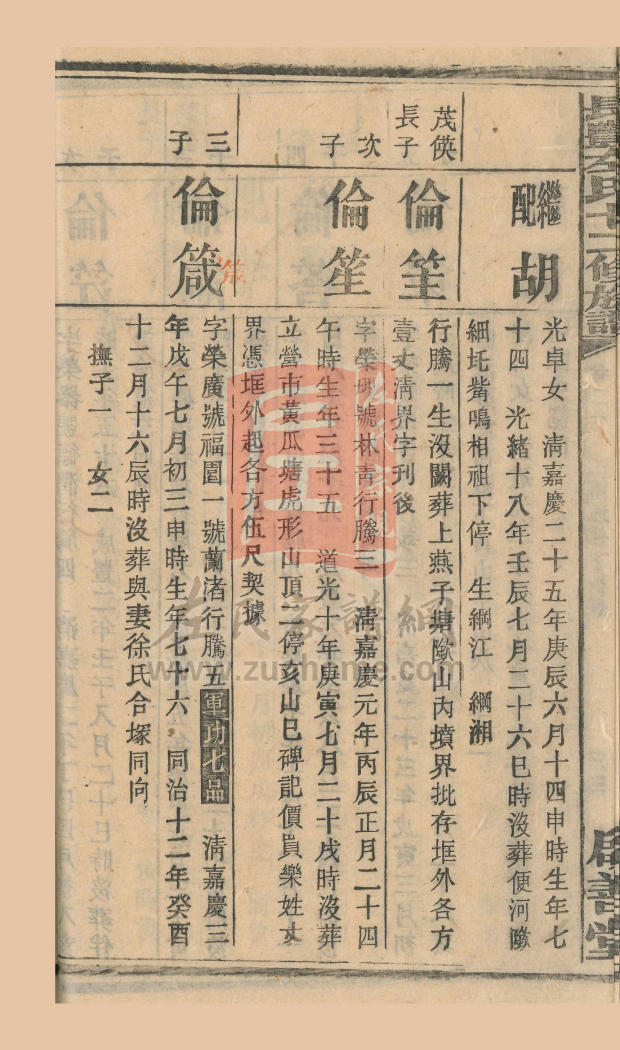 繼配胡
光卓女　淸嘉慶二十五年庚辰六月十四申時生年七
十四　光緒十八年壬辰七月二十六巳時沒葬便河
細圫觜鳴相祖下停　生綱江　綱湘
茂偀長子
倫笙
行騰一生沒闕葬上燕子塘山內墳界批存堆外各方
壹丈淸界字刊後
次子
倫笙
字榮號林靑行騰三　淸嘉慶元年丙辰正月二十四
午時生年三十五　道光十年庚寅七月二十戌時沒葬
立營市黃瓜塘虎形山頂二停亥山巳碑記價買樂姓丈
界憑堆外起各方伍尺契據
三子
倫箴
字榮廣號福圓一號蘭渚行騰五軍功七品　淸嘉慶三
年戊午七月初三申時生年七十六　同治十二年癸酉
十二月十六辰時沒葬與妻徐氏合塚同向
撫子一　女二
氏十二修族譜
啟善堂
www.zuphome.com